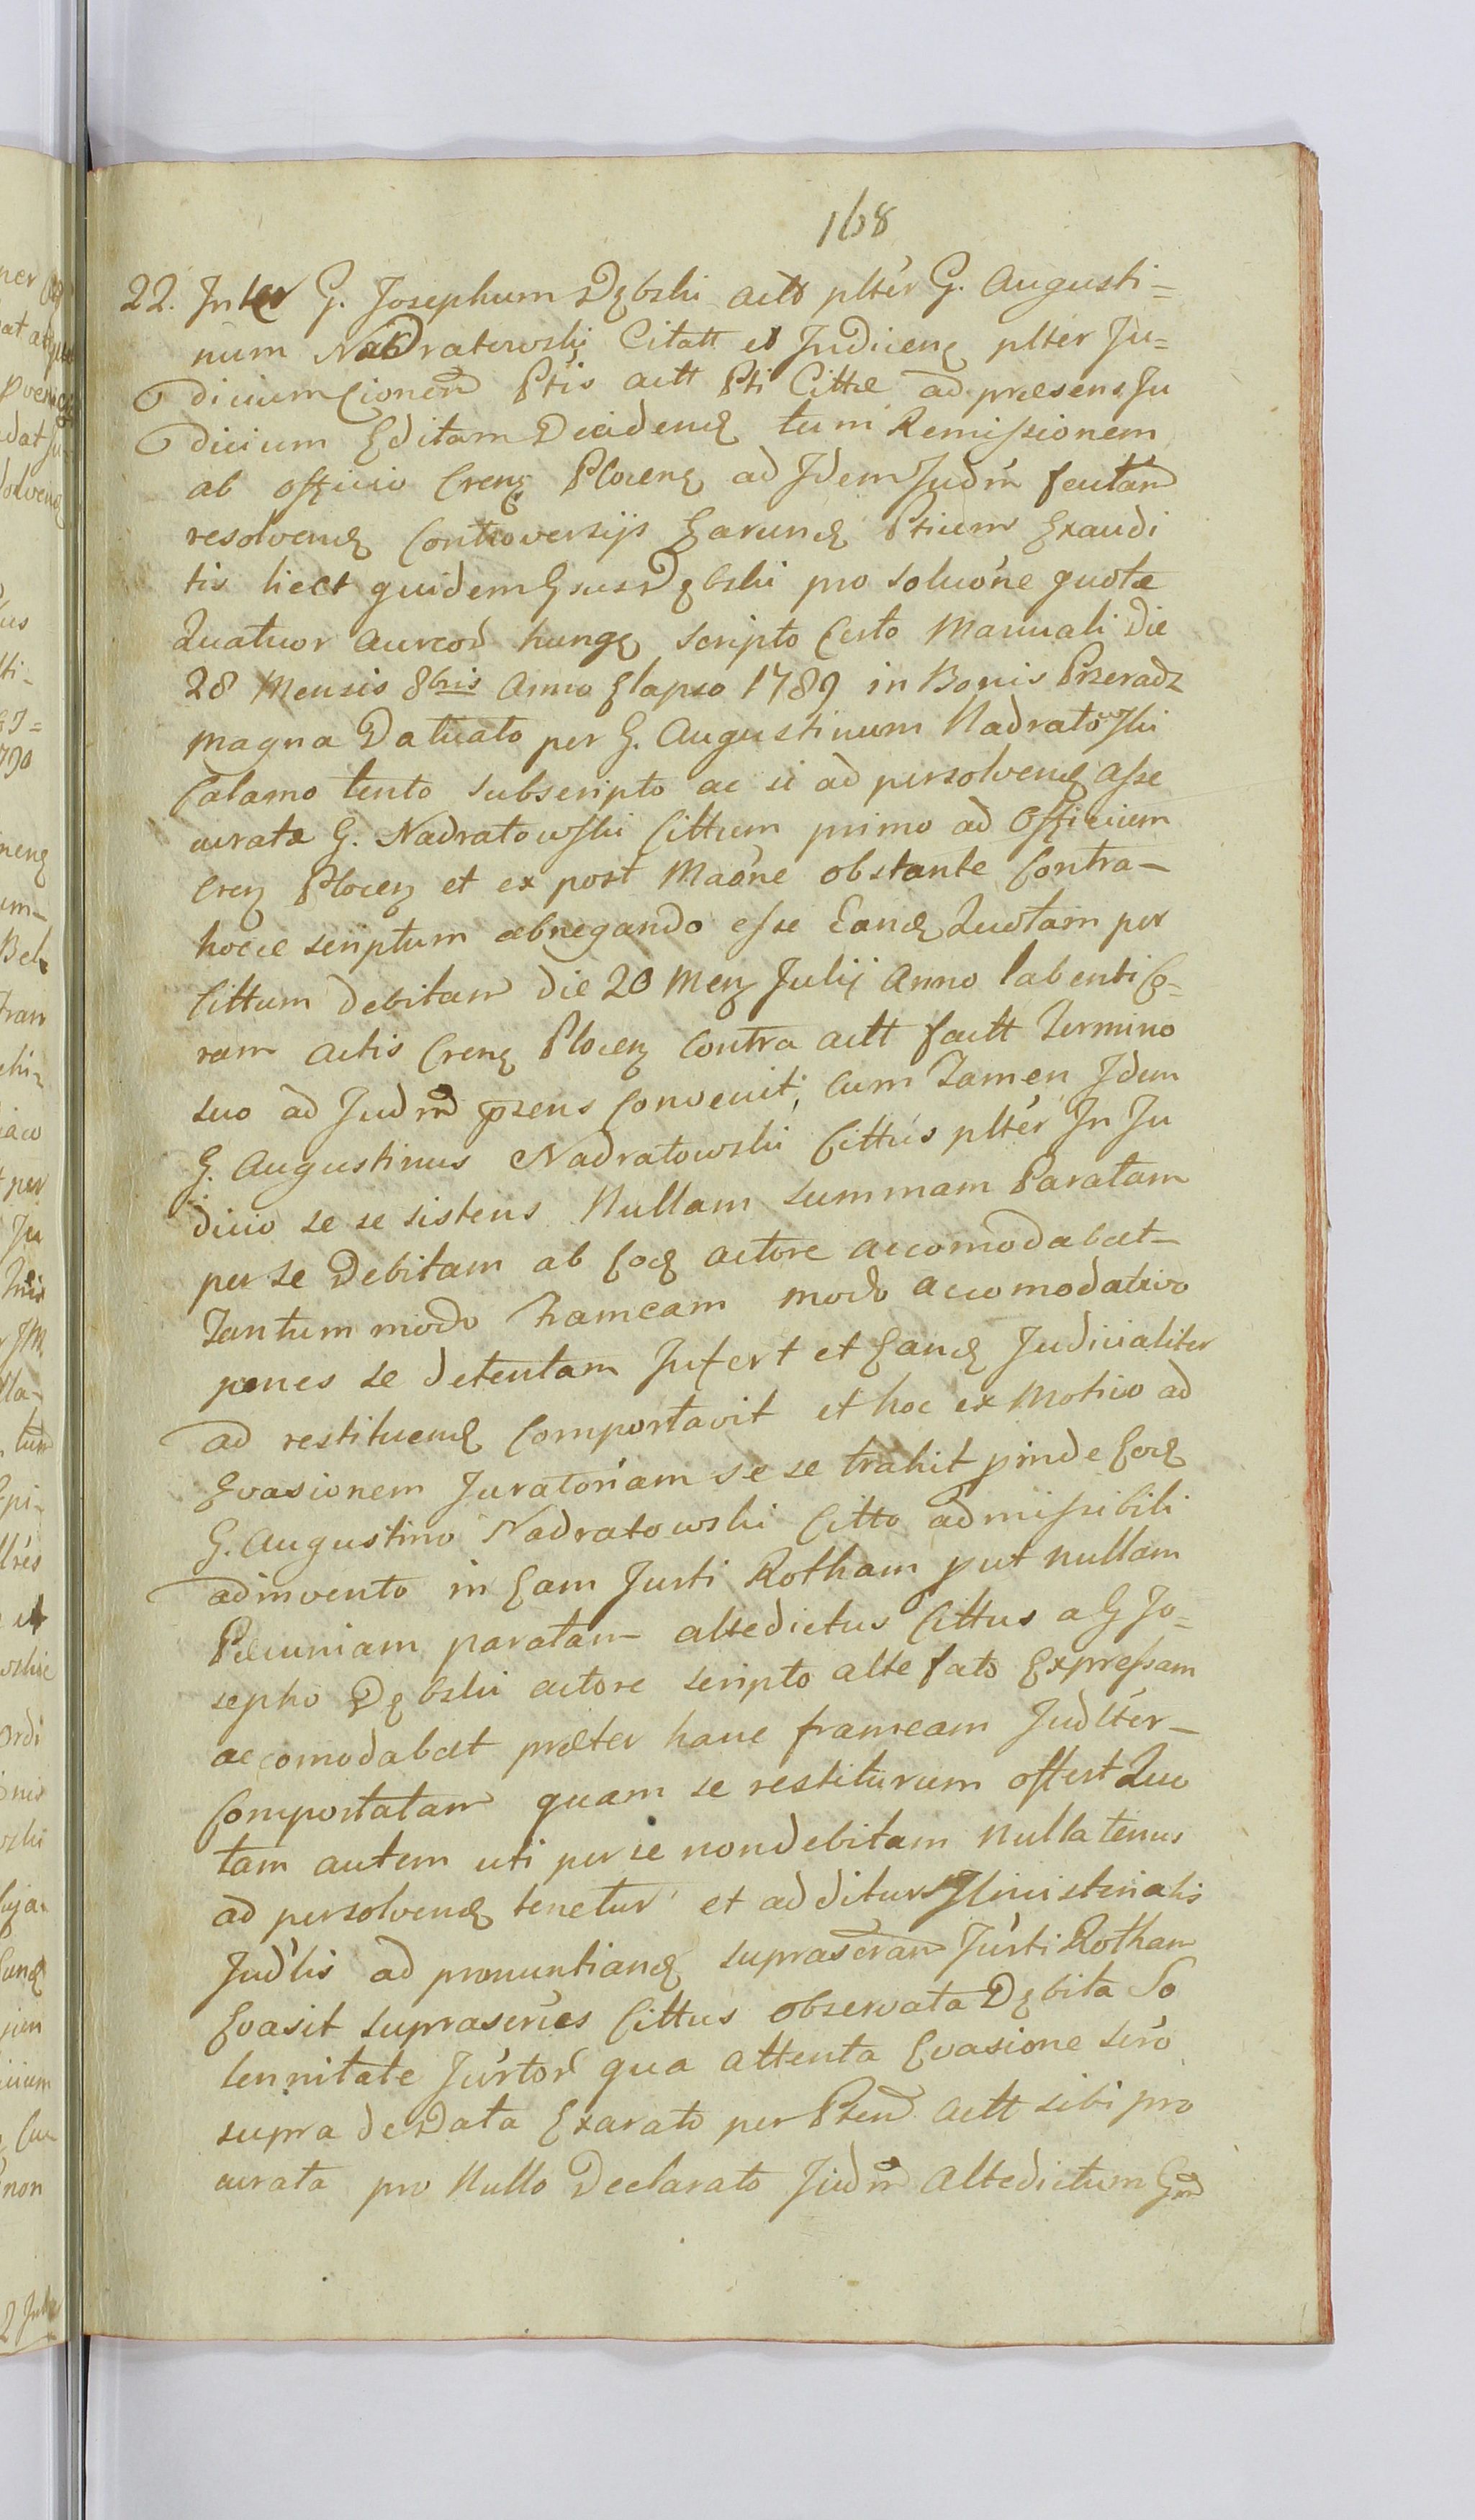 168
22. Inter G. Josephum Dębski actt pltér G. Augusti=
num Nadratowski Citatt et Judiceng plter Ju=
dicium Cionem Ptis actt Pti Cittæ ad præsens Ju
dicium Editam Decidend tum Remissionem
ab officio Creng Ploceng ad Idem Judm fcutam
resolvend Controversijs Earund Ptium Exaudi
tis licet quidem Gsus Dębski pro soluóne quotæ
Quatuor Aureor hung scripto Certo Manuali die
28 Mensis 8bris Anno Elapso 1789 in Bonis Przeradz
magna Datuato per G. Augustinum Nadratowski
Calamo tento subscripto ac si ad persolvend asse
curata G. Nadratowski Cittum primo ad Officium
Creng Ploceng et ex post Maóne obstante Contra-
hocce scriptum abnegando esse Eand Quotam per
Cittum debitam die 20 Meng Julij Anno labenti Co=
ram Actis Creng Ploceng Contra actt factt Termino
suo ad Judm psens Convenit, Cum Tamen Idem
G. Augustinus Nadratowski Cittus pltér In Ju
dicio se se sistens Nullam summam Paratam
per se Debitam ab Eod actore accomodabat-
Tantum modo frameam modo accomodativo
penes se detentam Infert et Eand Judicialiter
ad restituend Comportavit et hoc ex Motivo ad
Evasionem Juratoriam se se trahit pinde Eod
G. Augustino Nadratowski Citto admissibili
adinvento in Eam Jurti Rotham put nullam
Pecuniam paratam altedictus Cittus a G Jo=
sepho Dębski actore scripto alte fato Expressam
accomodabat præter hanc frameam Judlter-
Comportatam quam se restiturum offert Quo
tam autem uti per se non debitam nulla tenus
ad persolvend tenetur et additur Ministerialis
Judlis ad pronuntiand suprascram Jurti Rotham
Evasit suprascries Cittus observata Dębita So
lennitate Jurtor qua attenta Evasione scro
supra de Data Exarato per Psend actt sibi pro
curata pro Nullo Declarato Judm Altedictum Gm